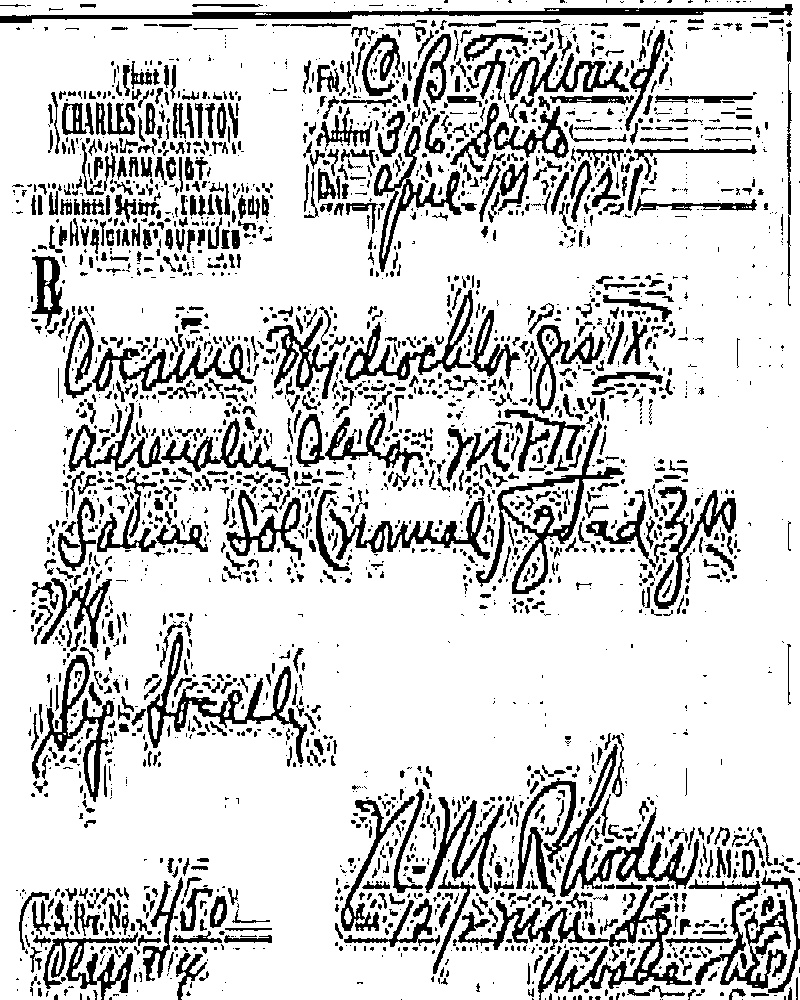 Phone 11
CHARLES B. HATTON
PHARMACIST
11 Monumental Square, URBANA, OHIO
PHYSICIANS' SUPPLIES
For C. B. Forward
Address 306 Scioto
Date April 191 1921
℞
Cocaine Hydrochlor grs IX
Adrenalin Chlor
Saline Sol. (normal) ad
M
Sig. Locally
N. M. Rhodes M.D.
U. S. Reg. No. 450
Office 12 1/2 Mon. Sq.
Class